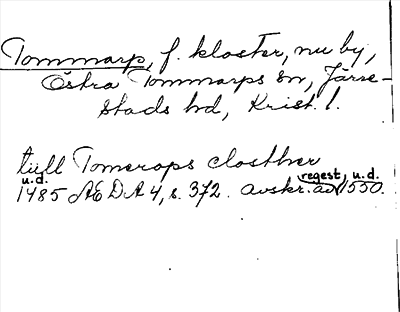 Tommarp, f. kloster, nu by,
Östra Tommarps sn, Järre-
stads hd, Krist. l.
tüll Tomerops closther
u.d. regest, u.d.
1485 ÆDA 4, s. 372. avskr. av 1550.